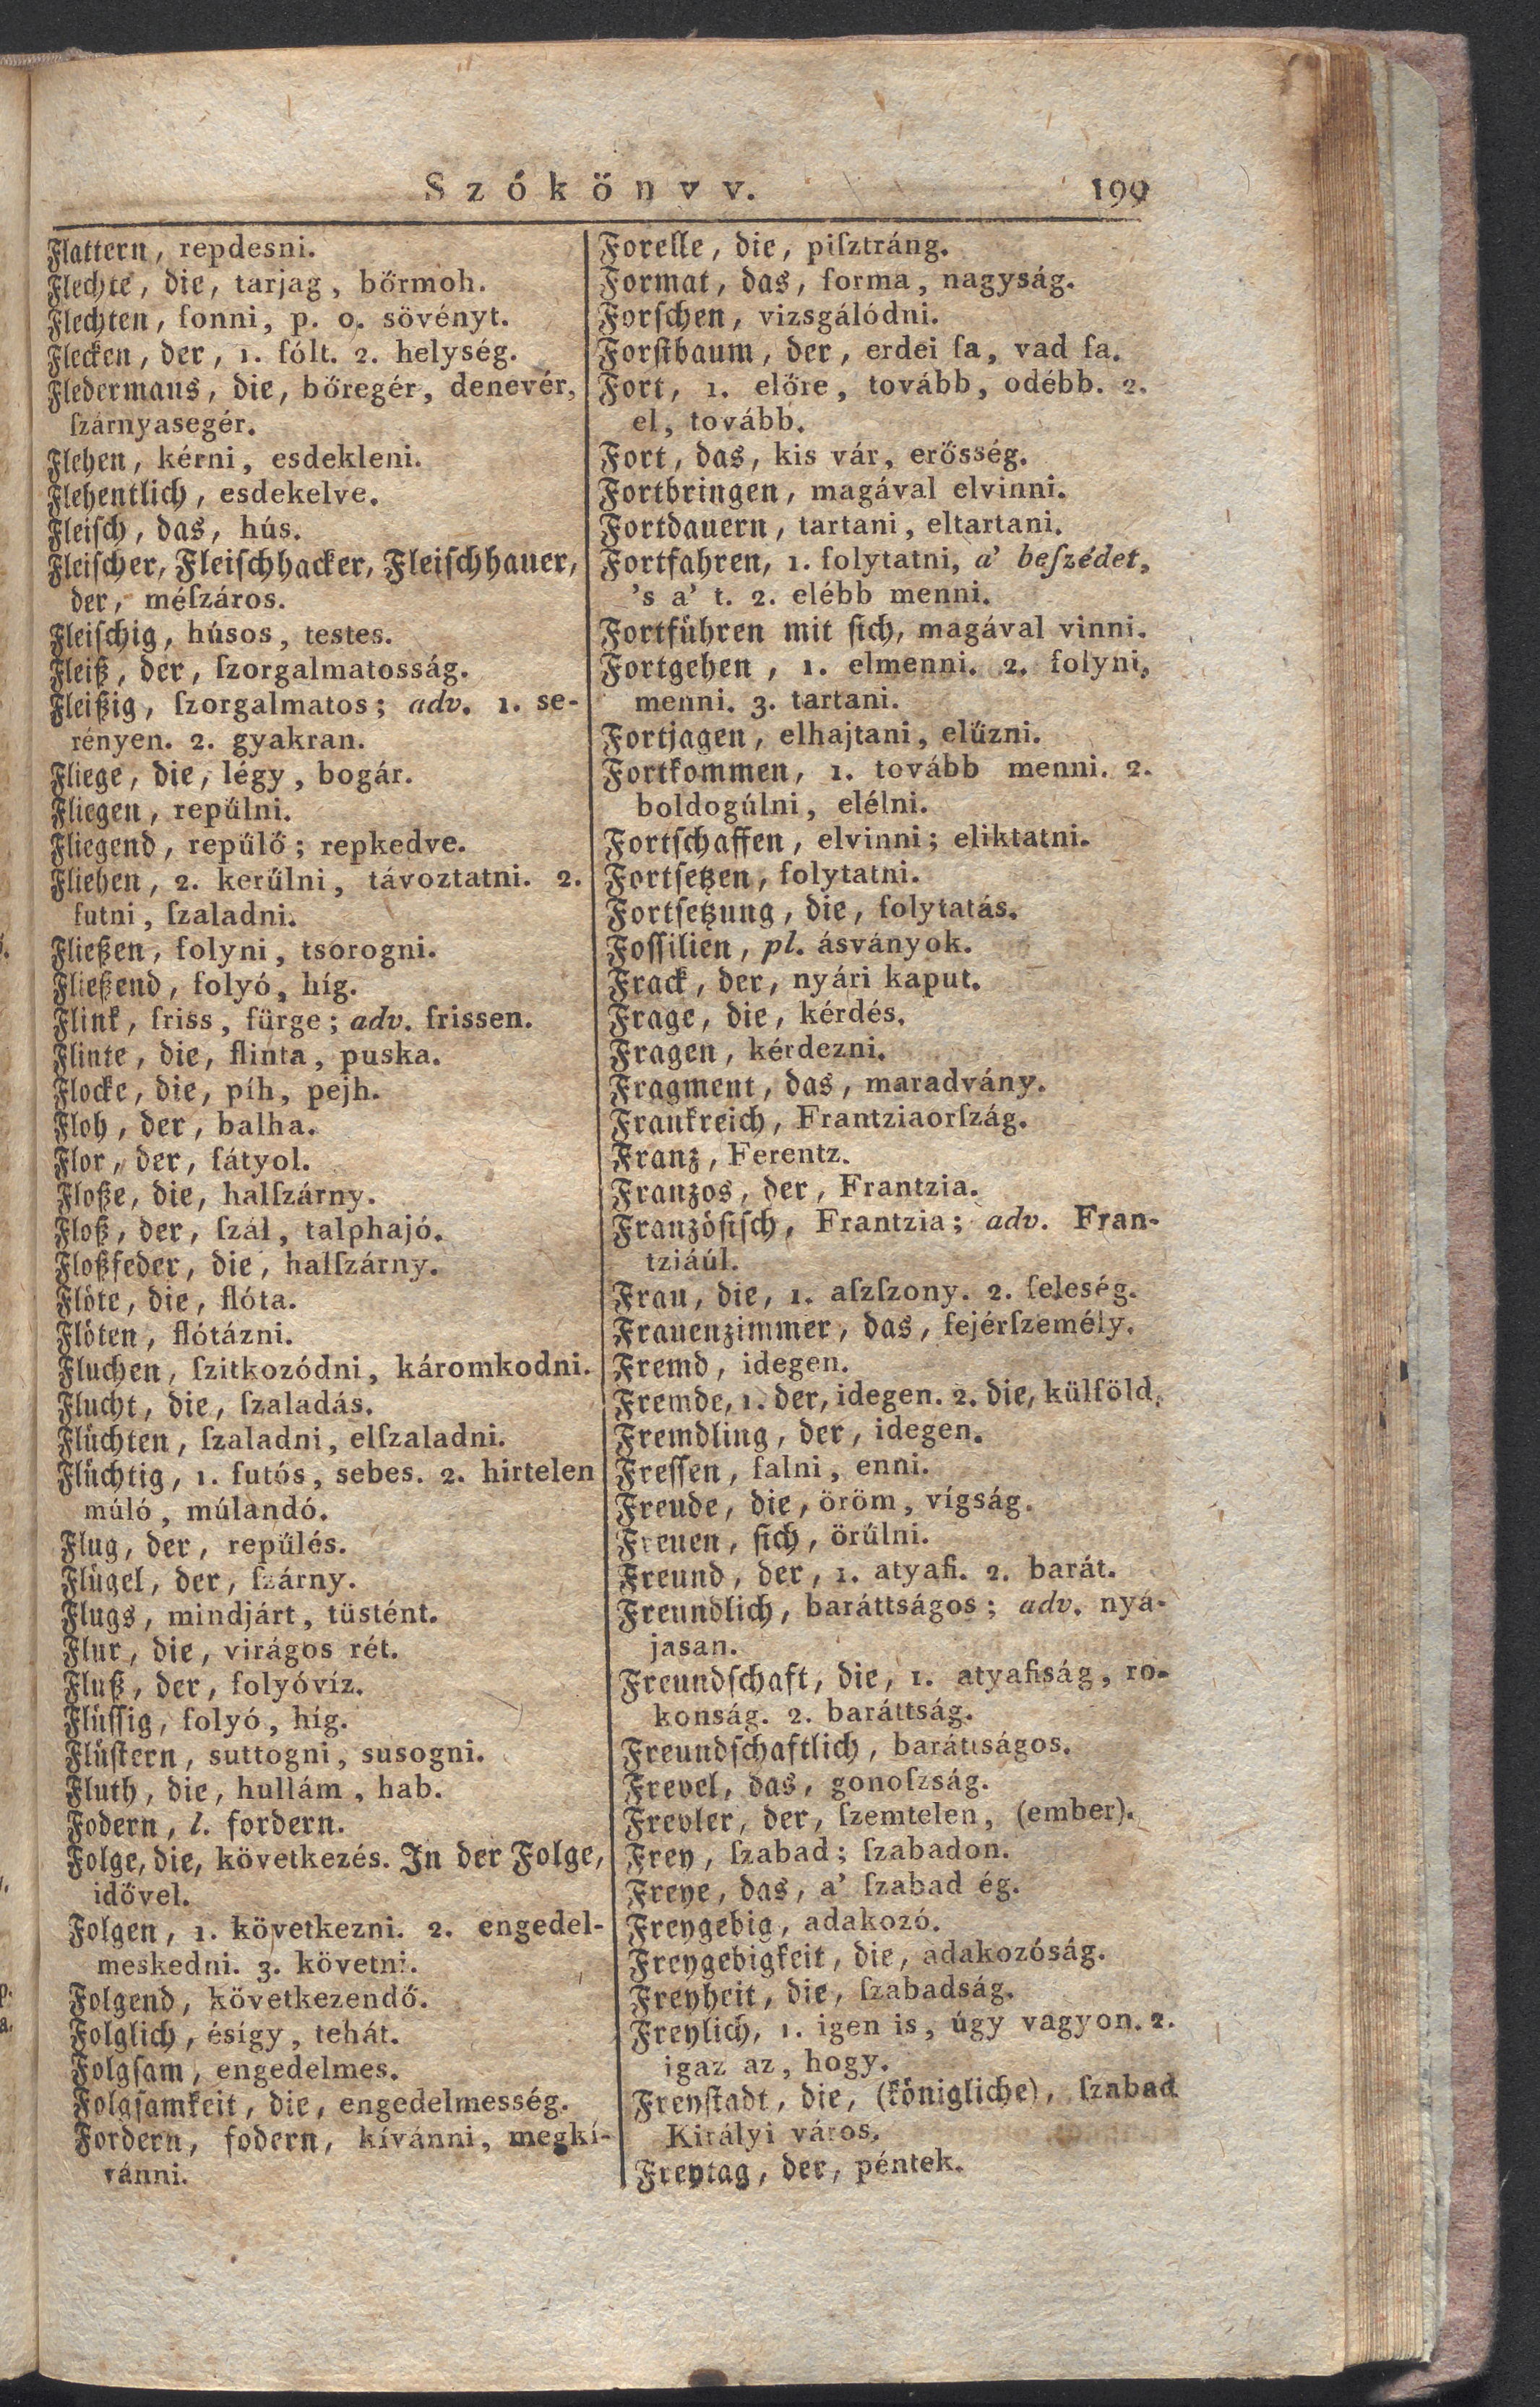 Szókönyv. 199
Flattern, repdesni.
Flechte, die, tarjag, bőrmoh.
Flechten, fonni, p. o. sövényt.
Flecken, der, 1. fólt. 2. helység.
Fledermaus, die, bőregér, denevér,
ſzárnyasegér.
Flehen, kérni, esdekleni.
Flehentlich, esdekelve.
Fleiſch, das, hús.
Fleiſcher, Fleiſchhacker, Fleiſchhauer,
der, méſzáros.
Fleiſchig, húsos, testes.
Fleiß, der, ſzorgalmatosság.
Fleißig, ſzorgalmatos; adv. 1. se-
rényen. 2. gyakran.
Fliege, die, légy, bogár.
Fliegen, repűlni.
Fliegend, repűlő; repkedve.
Fliehen, 2. kerűlni, távoztatni. 2.
futni, ſzaladni.
Fließen, folyni, tsorogni.
Fließend, folyó, híg.
Flink, friss, fürge; adv. frissen.
Flinte, die, flinta, puska.
Flocke, die, píh, pejh.
Floh, der, balha.
Flor, der, fátyol.
Floße, die, halſzárny.
Floß, der, ſzál, talphajó.
Floßfeder, die, halſzárny.
Flöte, die, flóta.
Flöten, flótázni.
Fluchen, ſzitkozódni, káromkodni.
Flucht, die, ſzaladás.
Flüchten, ſzaladni, elſzaladni.
Flüchtig, 1. futós, sebes. 2. hirtelen
múló, múlandó.
Flug, der, repűlés.
Flügel, der, ſzárny.
Flugs, mindjárt, tüstént.
Flur, die, virágos rét.
Fluß, der, folyóvíz.
Flüſſig, folyó, híg.
Flüſtern, suttogni, susogni.
Fluth, die, hullám, hab.
Fodern, l. fordern.
Folge, die, következés. In der Folge,
idővel.
Folgen, 1. következni. 2. engedel-
meskedni. 3. követni.
Folgend, következendő.
Folglich, ésígy, tehát.
Folgſam, engedelmes.
Folgſamkeit, die, engedelmesség.
Fordern, fodern, kívánni, megkí-
vánni.
Forelle, die, piſztráng.
Format, das, forma, nagyság.
Forſchen, vizsgálódni.
Forſtbaum, der, erdei fa, vad fa.
Fort, 1. előre, tovább, odébb. 2.
el, tovább.
Fort, das, kis vár, erősség.
Fortbringen, magával elvinni.
Fortdauern, tartani, eltartani.
Fortfahren, 1. folytatni, a' beſzédet,
's a' t. 2. elébb menni.
Fortführen mit ſich, magával vinni.
Fortgehen, 1. elmenni. 2. folyni,
menni. 3. tartani.
Fortjagen, elhajtani, elűzni.
Fortkommen, 1. tovább menni. 2.
boldogúlni, elélni.
Fortſchaffen, elvinni; eliktatni.
Fortſetzen, folytatni.
Fortſetzung, die, folytatás.
Foſſilien, pl. ásványok.
Frack, der, nyári kaput.
Frage, die, kérdés.
Fragen, kérdezni.
Fragment, das, maradvány.
Frankreich, Frantziaorſzág.
Franz, Ferentz.
Franzos, der, Frantzia.
Franzöſiſch, Frantzia; adv. Fran-
tziáúl.
Frau, die, 1. aſzſzony. 2. feleség.
Frauenzimmer, das, fejérſzemély.
Fremd, idegen.
Fremde, 1. der, idegen. 2. die, külföld.
Fremdling, der, idegen.
Freſſen, falni, enni.
Freude, die, öröm, vígság.
Freuen, ſich, örűlni.
Freund, der, 1. atyafi. 2. barát.
Freundlich, baráttságos; adv. nyá-
jasan.
Freundſchaft, die, 1. atyafiság, ro-
konság. 2. baráttság.
Freundſchaftlich, baráttságos.
Frevel, das, gonoſzság.
Frevler, der, ſzemtelen, (ember).
Frey, ſzabad; ſzabadon.
Freye, das, a' ſzabad ég.
Freygebig, adakozó.
Freygebigkeit, die, adakozóság.
Freyheit, die, ſzabadság.
Freylich, 1. igen is, úgy vagyon. 2.
igaz az, hogy.
Freyſtadt, die, (königliche), ſzabad
Királyi város.
Freytag, der, péntek.